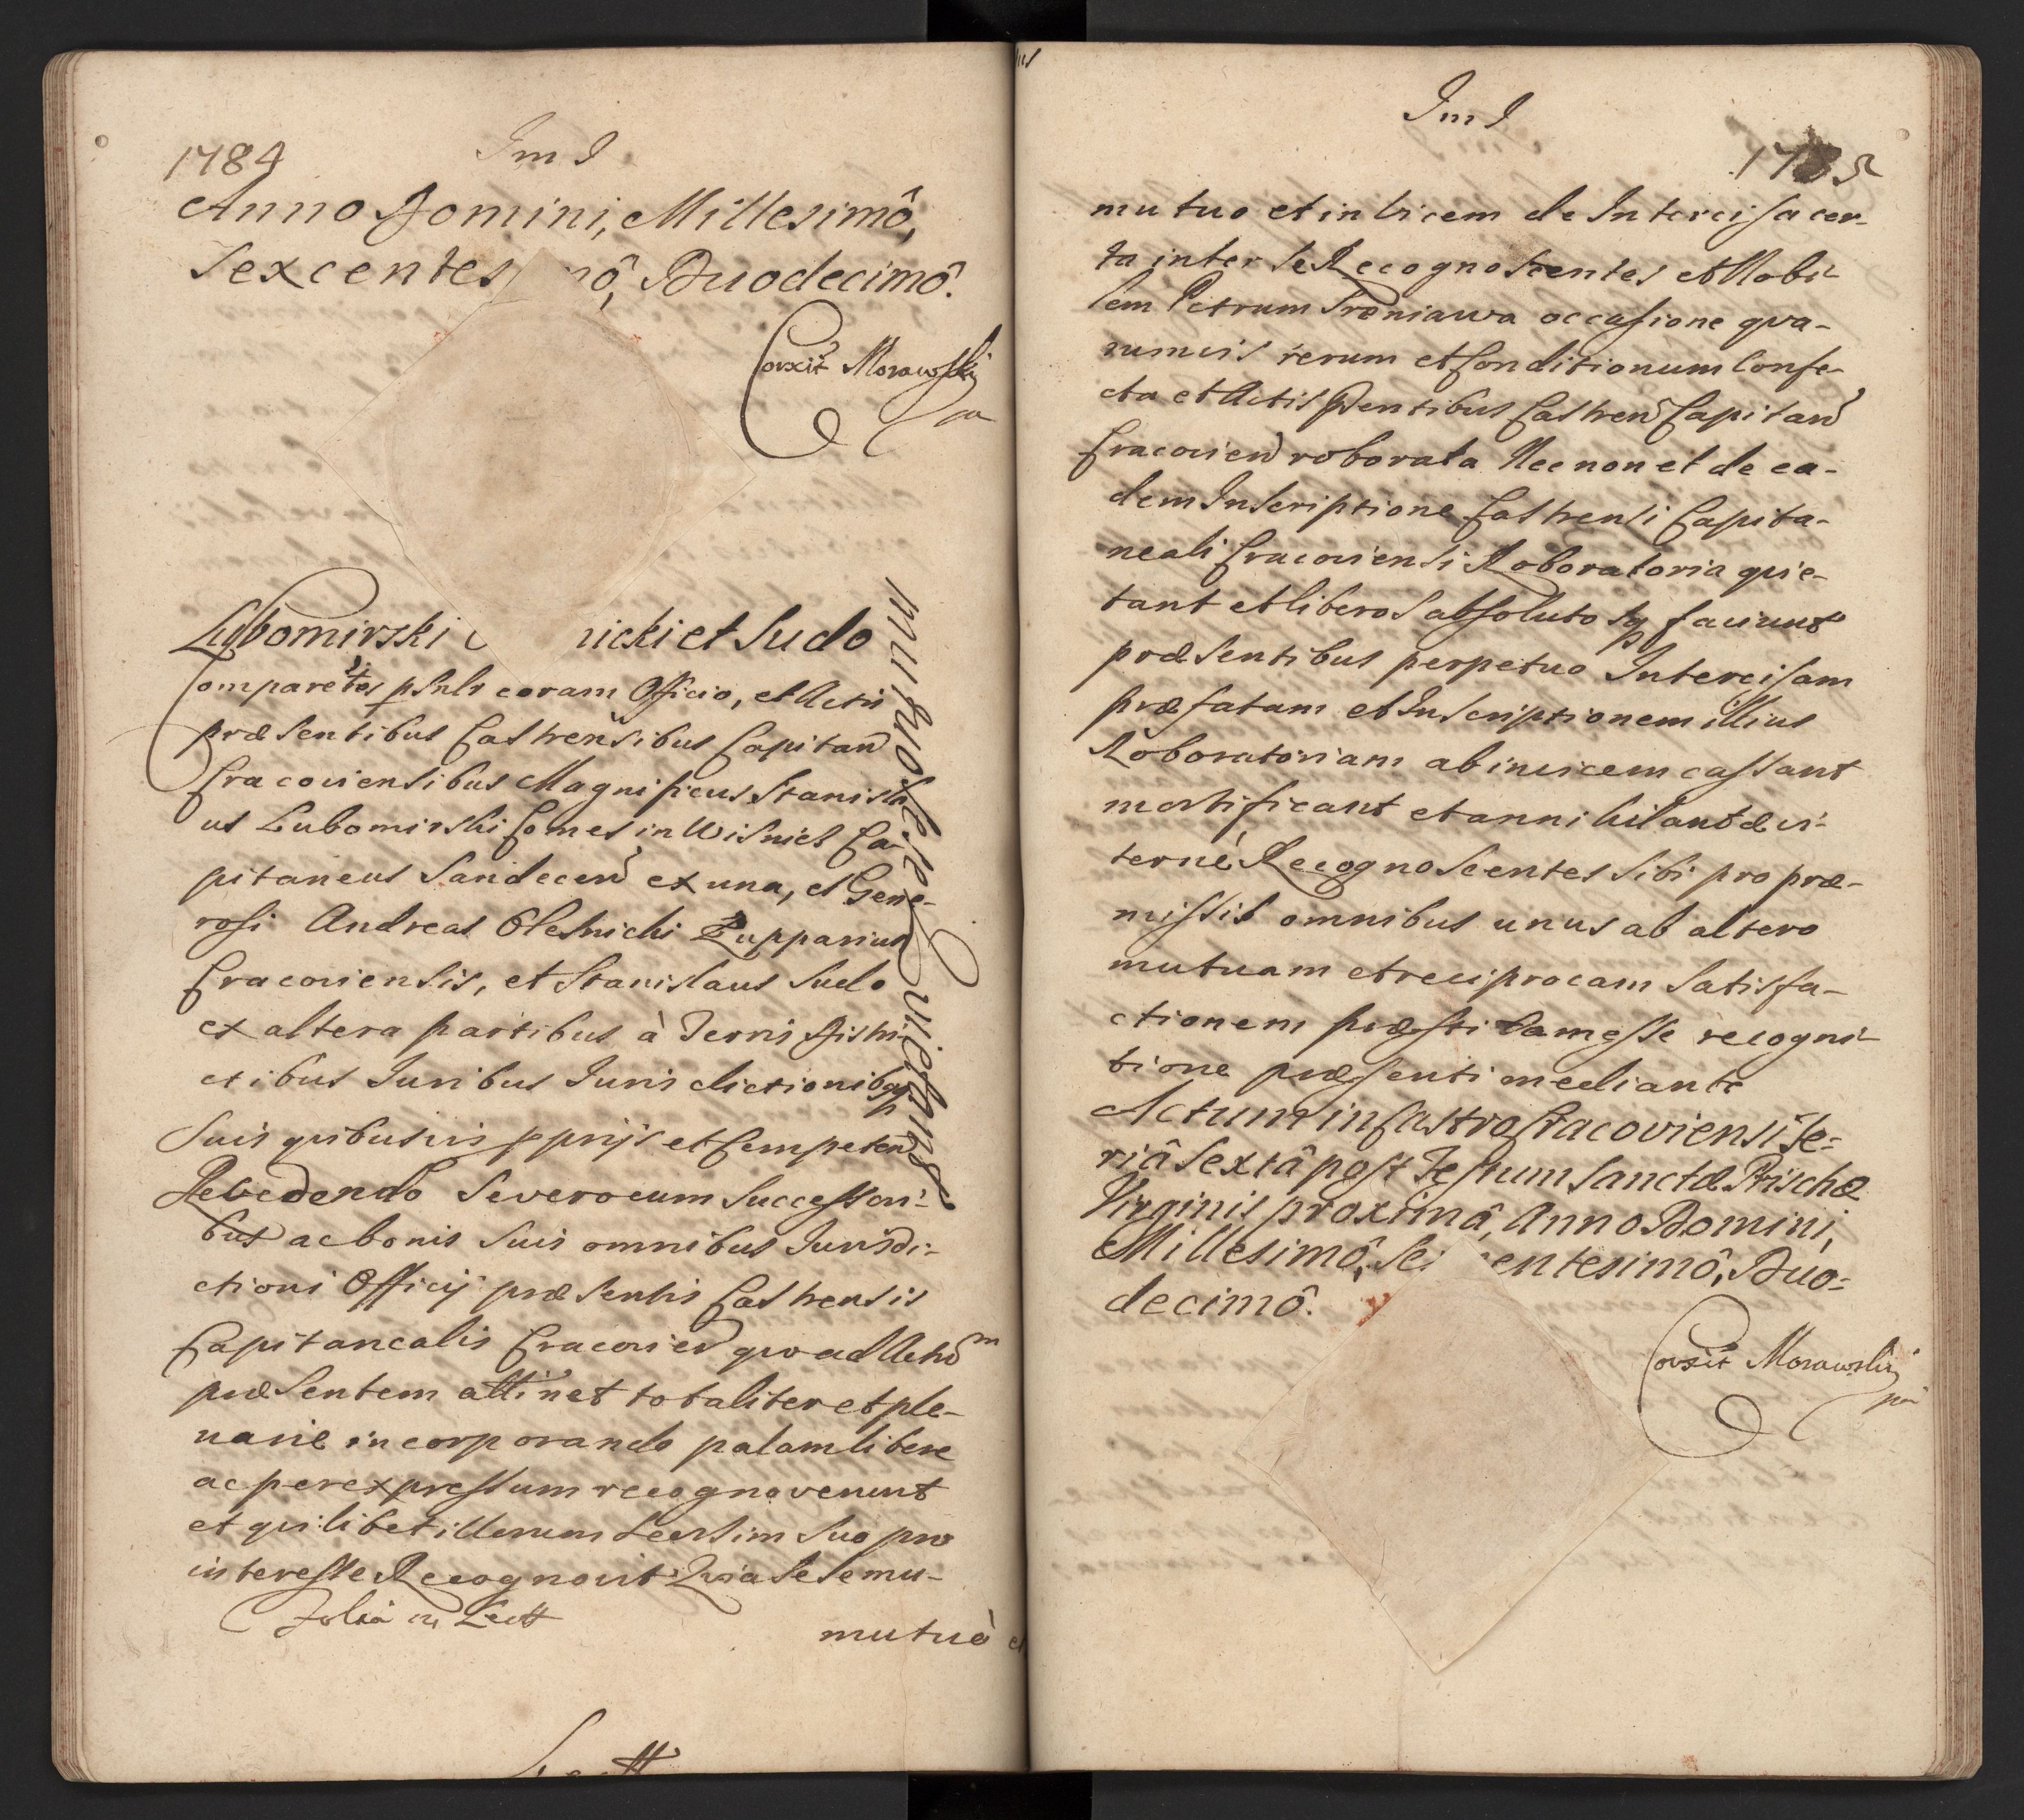 1784
Im I
Anno Domini, Millesimô,
Sexcentes mô, Duodecimô.
Corxit Morawski
Lubomirski nicki et Sudo
mutuo se se quietant
Comparetes psnlr coram Officio, et Actis
præsentibus Castrensibus Capitan
Cracoviensibus Magnificus Stanisla
us Lubomirski Comes in Wisnicz Ca
pitaneus Sandecen ex una, et Gene-
rosi Andreas Olesnicki Zupparius
Cracoviensis, et Stanislaus Sudo
ex altera partibus à Terris Distri-
ctibus Iuribus Iuris dictionibqz
Suis quibusvis pprijs et Competen
Recedendo Seveorcum Successori-
bus ac bonis Suis omnibus Iurisdi-
ctioni Officij præsentis Castrensis
Capitanealis Cracovien quo ad Actum
præsentem attinet totaliter et ple-
narie incorporando palam libere
ac per expressum recognoverunt
et quilibet illorum seorsim suo pro
interesse Recognovit Quia Se Se mu-
mutuò et
Im I
1785
mutuo et in vicem de Intercisa cer-
ta inter Se Recognoscentes et Nobi-
lem Petrum Sreniawa occasione qva-
rumvis rerum et Conditionum Confe-
cta et Actis pntibus Castren Capitan
Cracovien roborata Nec non et de ea-
dem Inscriptione Castrensi Capita-
neali Cracoviensi Roboratoria quie-
tant et liberos absolutosqz faciunt
præsentibus perpetuo Intercisam
præfatam et Inscriptionem illius
Roboratoriam ab invicem cassant
mortificant et annihilant ævi-
ternè Recognoscentes Sibi pro præ-
missis omnibus unus ab altero
mutuam et reciprocam Satisfa-
ctionem præstitam esse recogni-
tione præsenti mediante
Actum in Castro Cracoviensi Fe-
riâ Sextâ post Festum Sanctæ Prischæ
Virginis proximâ, Anno Domini,
Millesimô, Se entesimô, Duo-
decimô.
Corxit Morawski